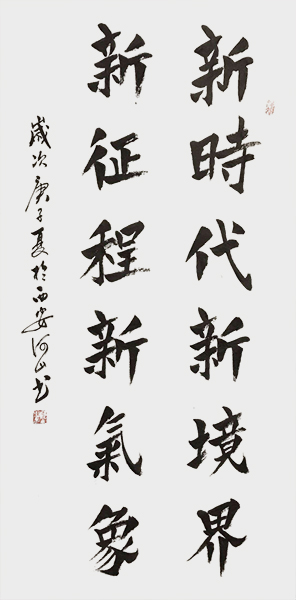 新時代新境界
新征程新氣象
歲次庚子夏於西安河山書